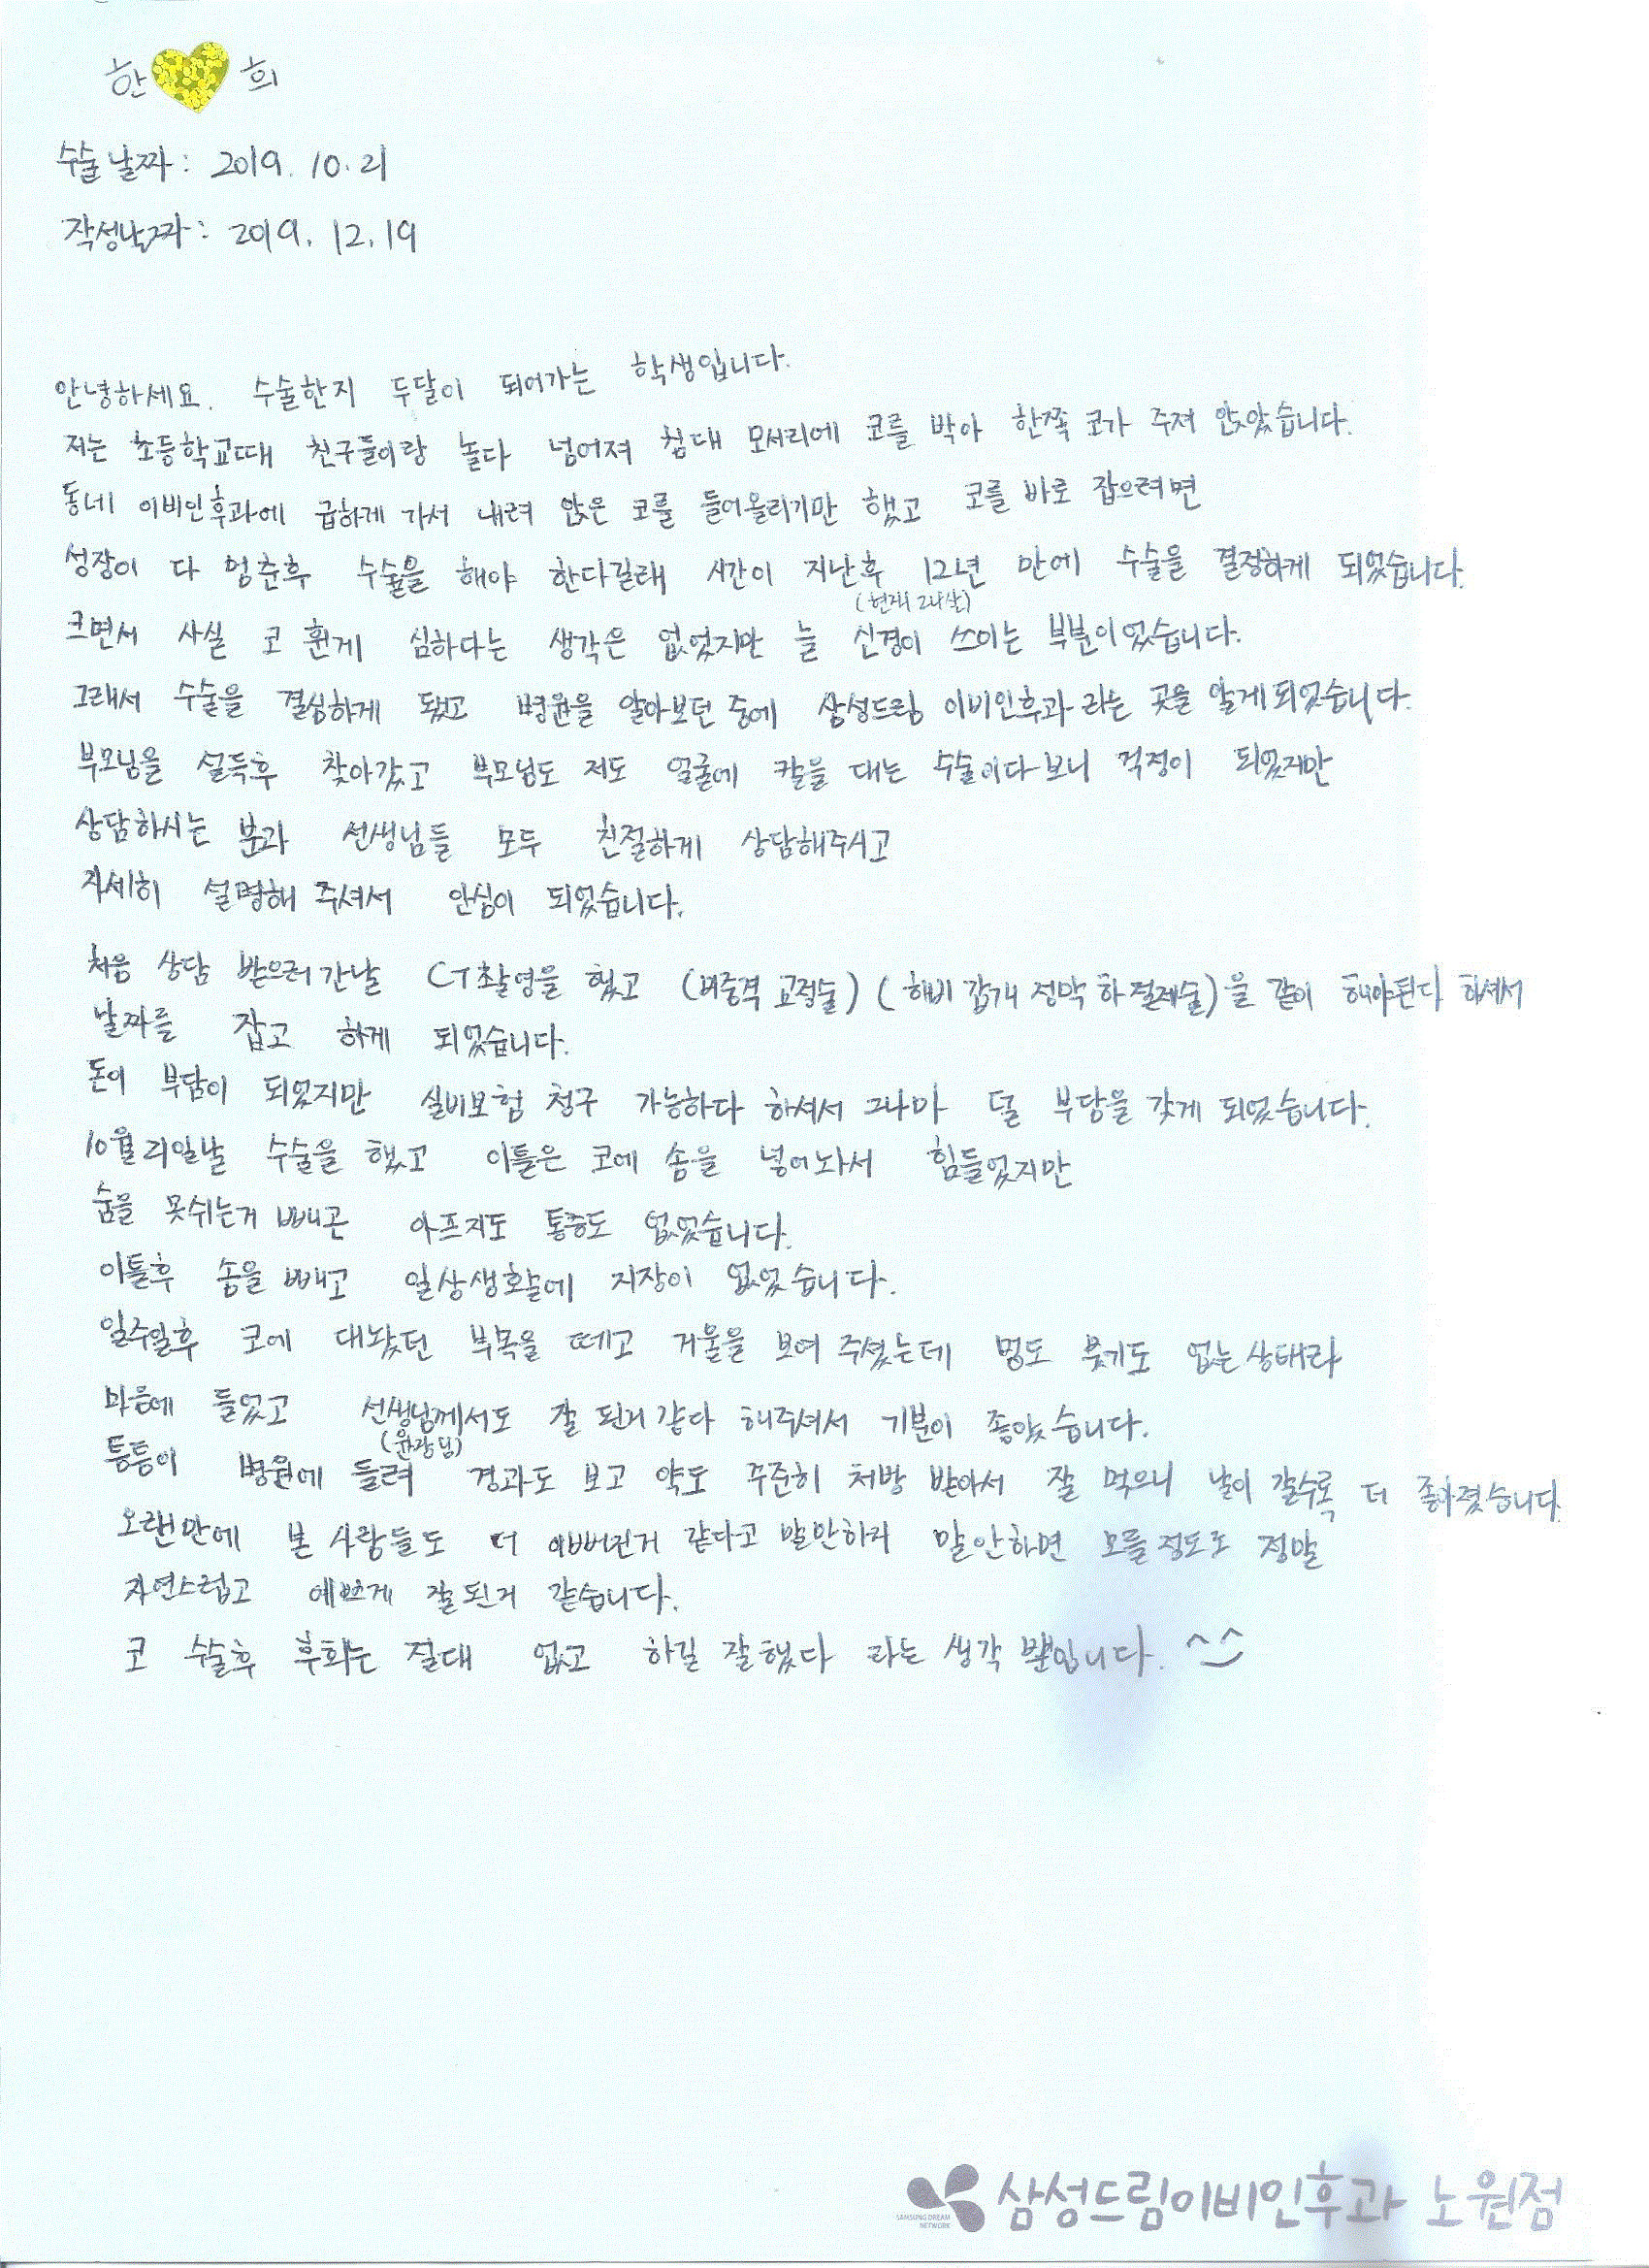 한 희
수술날짜 : 2019. 10. 21
작성날짜 : 2019. 12. 19
안녕하세요. 수술한지 두달이 되어가는 학생입니다.
저는 초등학교때 친구들이랑 놀다 넘어져 침대 모서리에 코를 박아 한쪽 코가 주져 앉았습니다.
동네 이비인후과에 급하게 가서 내려 앉은 코를 들어올리기만 했고 코를 바로 잡으려면
성장이 다 멈춘후 수술을 해야 한다길래 시간이 지난후 12년 만에 수술을 결정하게 되었습니다.
크면서 사실 코 휜게 심하다는 생각은 없었지만 늘 신경이 쓰이는 부분이었습니다.
그래서 수술을 결심하게 됐고 병원을 알아보던 중에 삼성드림 이비인후과 라는 곳을 알게되었습니다.
부모님을 설득후 찾아갔고 부모님도 저도 얼굴에 칼을 대는 수술이다보니 걱정이 되었지만
상담하시는 분과 선생님들 모두 친절하게 상담해주시고
자세히 설명해 주셔서 안심이 되었습니다.
처음 상담 받으러 간날 CT촬영을 했고 (비중격 교정술) (하비갑개 점막하 절제술)을 같이 해야된다 하셔서
날짜를 잡고 하게 되었습니다.
돈이 부담이 되었지만 실비보험 청구 가능하다 하셔서 그나마 덜 부담을 갖게 되었습니다.
10월 21일날 수술을 했고 이틀은 코에 솜을 넣어놔서 힘들었지만
숨을 못쉬는거 빼곤 아프지도 통증도 없었습니다.
이틀후 솜을 빼고 일상생활에 지장이 없었습니다.
일주일후 코에 대놨던 부목을 떼고 거울을 보여 주셨는데 멍도 붓기도 없는상태라
마음에 들었고 선생님께서도 잘 된거 같다 해주셔서 기분이 좋았습니다.
(원장님)
틈틈이 병원에 들려 경과도 보고 약도 꾸준히 처방 받아서 잘 먹으니 날이 갈수록 더 좋아졌습니다.
오랜만에 본 사람들도 더 이뻐진거 같다고 말 안하면 모를정도로 정말
자연스럽고 예쁘게 잘된거 같습니다.
코 수술후 후회는 절대 없고 하길 잘했다 라는 생각 뿐입니다. ^^
SAMSUNG DREAM NETWORK
삼성드림이비인후과 노원점